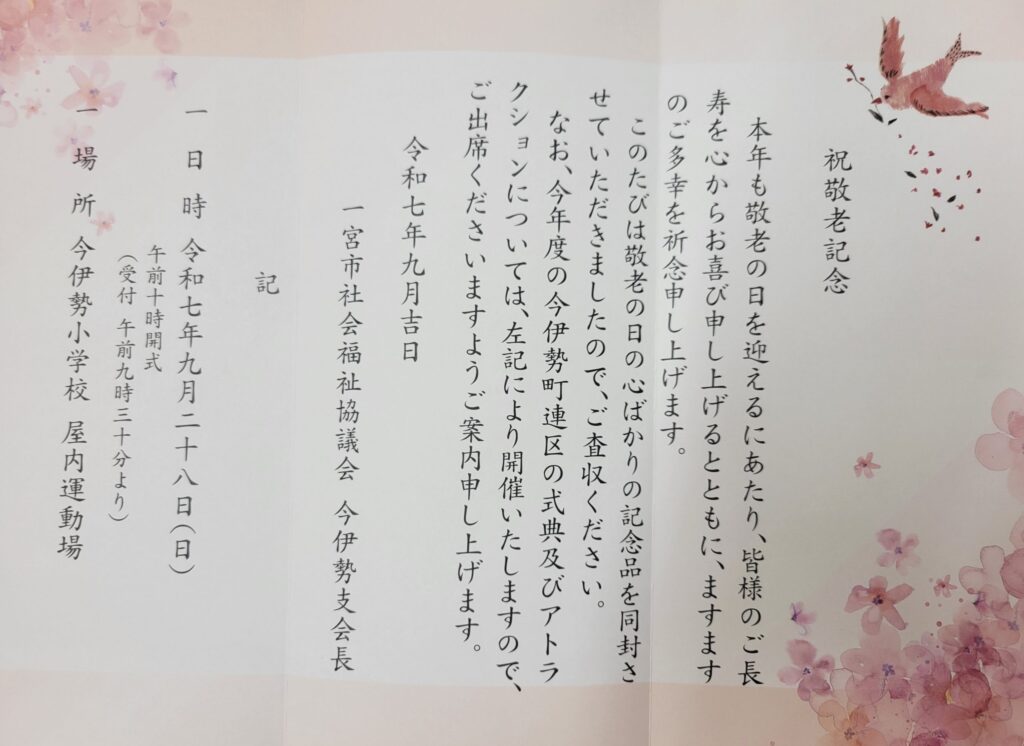 祝敬老記念
本年も敬老の日を迎えるにあたり、皆様のご長
寿を心からお喜び申し上げるとともに、ますます
のご多幸を祈念申し上げます。
このたびは敬老の日の心ばかりの記念品を同封さ
せていただきましたので、ご査収ください。
なお、今年度の今伊勢町連区の式典及びアトラ
クションについては、左記により開催いたしますので、
ご出席くださいますようご案内申し上げます。
令和七年九月吉日
一宮市社会福祉協議会 今伊勢支会長
記
一 日 時 令和七年九月二十八日(日)
午前十時開式
(受付 午前九時三十分より)
一 場 所 今伊勢小学校 屋内運動場